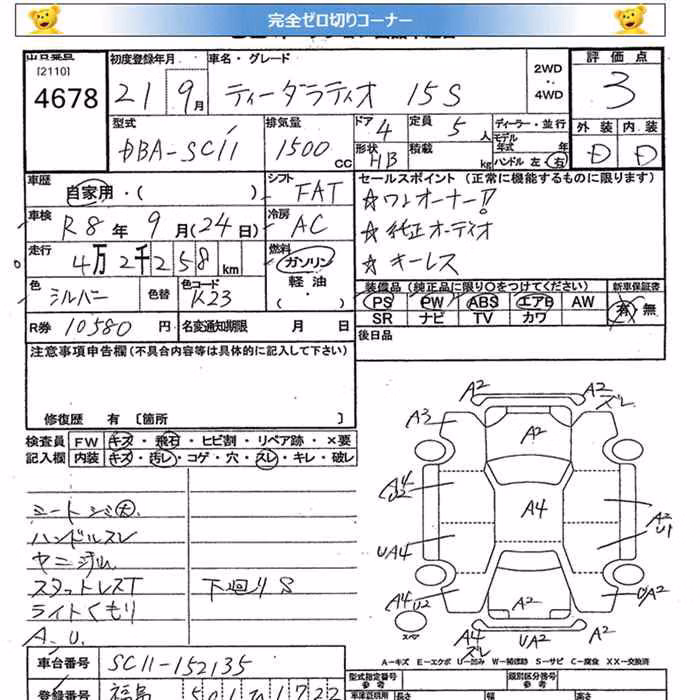 完全ゼロ切りコーナー
[2110]
4678
初度登録年月
21 9月
車名・グレード
ティーダラティオ 15S
2WD
4WD
評価点
3
外装 内装
D D
型式
DBA-SC11
排気量
1500 CC
ドア 4
形状 HB
定員 5 人
積載 kg
ディーラー・並行
モデル年式 年
ハンドル 左 右
車歴
自家用・( )
シフト
FAT
車検
R8年 9月(24日)
冷房
AC
走行
4万2千258km
燃料
ガソリン
軽油
・( )
色
シルバー
色替
色コード
K23
R券 10580円
名変通知期限 月 日
セールスポイント (正常に機能するものに限ります)
☆ワンオーナー!!
☆純正オーディオ
☆キーレス
装備品(純正品に限り〇をつけてください)
PS PW ABS エアB AW
SR ナビ TV カワ
新車保証書
有 無
後日品
注意事項申告欄(不具合内容等は具体的に記入して下さい)
修復歴 有 〔箇所 〕
検査員記入欄
FW キズ・飛石・ヒビ割・リペア跡・×要
内装 キズ・汚レ・コゲ・穴・スレ・キレ・破レ
シートシミ大
ハンドルスレ
ヤニ汚レ
スタットレスT
ライトくもり
A.U.
下廻りS
A2
A2
ズレ
A3
A2
A4
U2
A4
A2
U1
UA4
A4
U2
UA2
A2
スペア
A4
ズレ
UA2
A2
A-キズ E-エクボ U-凹み W-補修跡 S-サビ C-腐食 XX-交換済
車台番号 SC11-152135
登録番号 福島 501
型式指定番号
参考
類別区分番号
参考
車庫証明用 長さ 幅 高さ